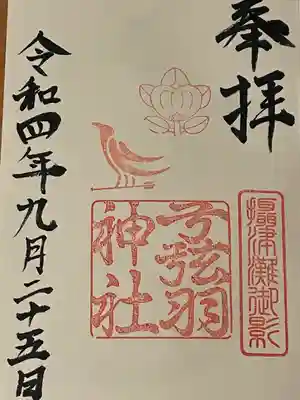 奉拝
摂津灘御影
弓弦羽
神社
令和四年九月二十五日